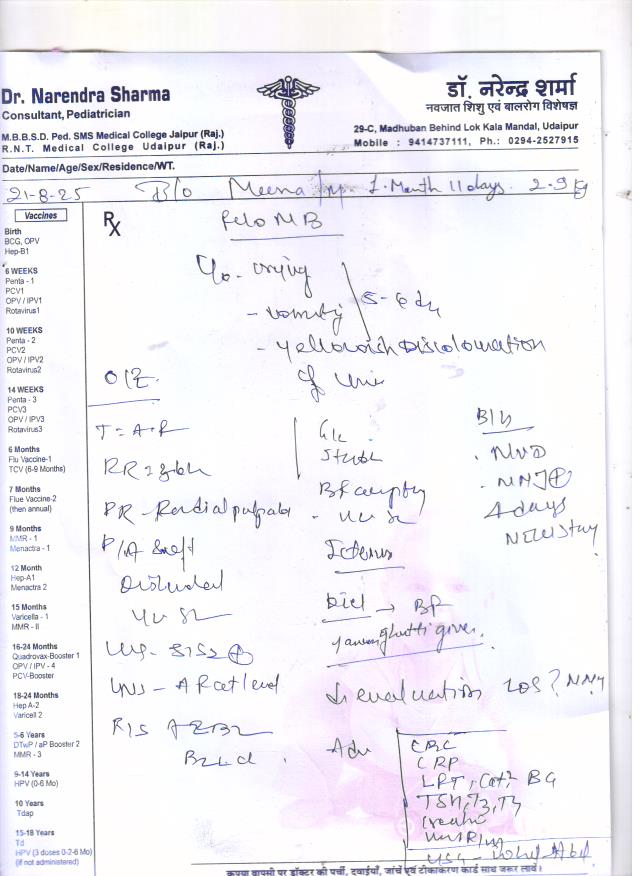 Dr. Narendra Sharma
Consultant, Pediatrician
M.B.B.S.D. Ped. SMS Medical College Jaipur (Raj.)
R.N.T. Medical College Udaipur (Raj.)
डॉ. नरेन्द्र शर्मा
नवजात शिशु एवं बालरोग विशेषज्ञ
29-C, Madhuban Behind Lok Kala Mandal, Udaipur
Mobile : 9414737111, Ph.: 0294-2527915
Date/Name/Age/Sex/Residence/WT.
21-8-25 B/o Meena 1 Month 11 days. 2.9 kg
Vaccines
Birth
BCG, OPV
Hep-B1
6 WEEKS
Penta - 1
PCV1
OPV / IPV1
Rotavirus1
10 WEEKS
Penta - 2
PCV2
OPV / IPV2
Rotavirus2
14 WEEKS
Penta - 3
PCV3
OPV / IPV3
Rotavirus3
6 Months
Flu Vaccine-1
TCV (6-9 Months)
7 Months
Flue Vaccine-2
(then annual)
9 Months
MMR - 1
Menactra - 1
12 Month
Hep-A1
Menactra 2
15 Months
Varicella - 1
MMR - II
16-24 Months
Quadrovax-Booster 1
OPV / IPV - 4
PCV-Booster
18-24 Months
Hep A-2
Varicell 2
5-6 Years
DTwP / aP Booster 2
MMR - 3
9-14 Years
HPV (0-6 Mo)
10 Years
Tdap
15-18 Years
Td
HPV (3 doses 0-2-6 Mo)
(if not administered)
Rx
c/o - crying
- vomity
5-6 day
- yellowish Discolouration
of urine
O/E
PR - Radial
P/A soft
Distended
S1S2 ⊕
Icterus
Diet → BF
given.
B/H
. NVD
. NNJ ⊕
4 days
NICU stay
evaluation LOS?
Adv
CBC
CRP
LFT, BG
TSH, T3, T4
USG - whole Abd
कृपया वापसी पर डॉक्टर की पर्ची, दवाईयाँ, जांचें एवं टीकाकरण कार्ड साथ जरूर लावें।